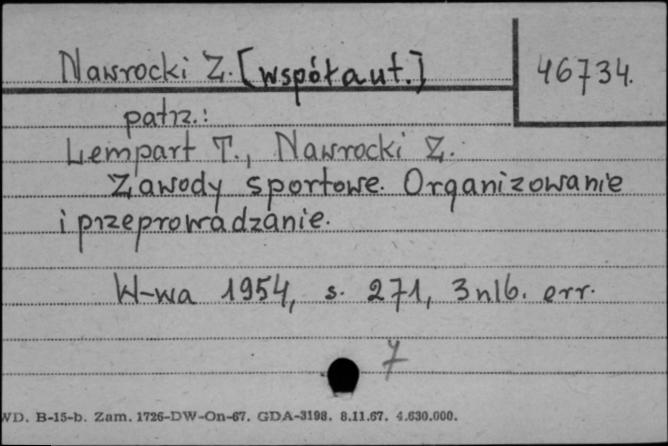 Nawrocki Z. [współaut.] 46734.
patrz.:
Lempart T., Nawrocki Z.
Zawody sportowe. Organizowanie
i przeprowadzanie.
W-wa 1954, s. 271, 3 nlb. err.
7
WD. B-15-b. Zam. 1726-DW-On-67. GDA-3198. 8.11.67. 4.630.000.